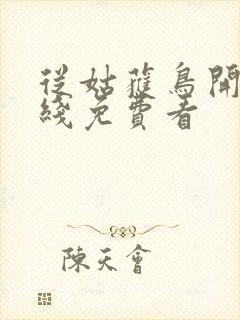 從姑蘿鳥開
綫免費看
陳天會